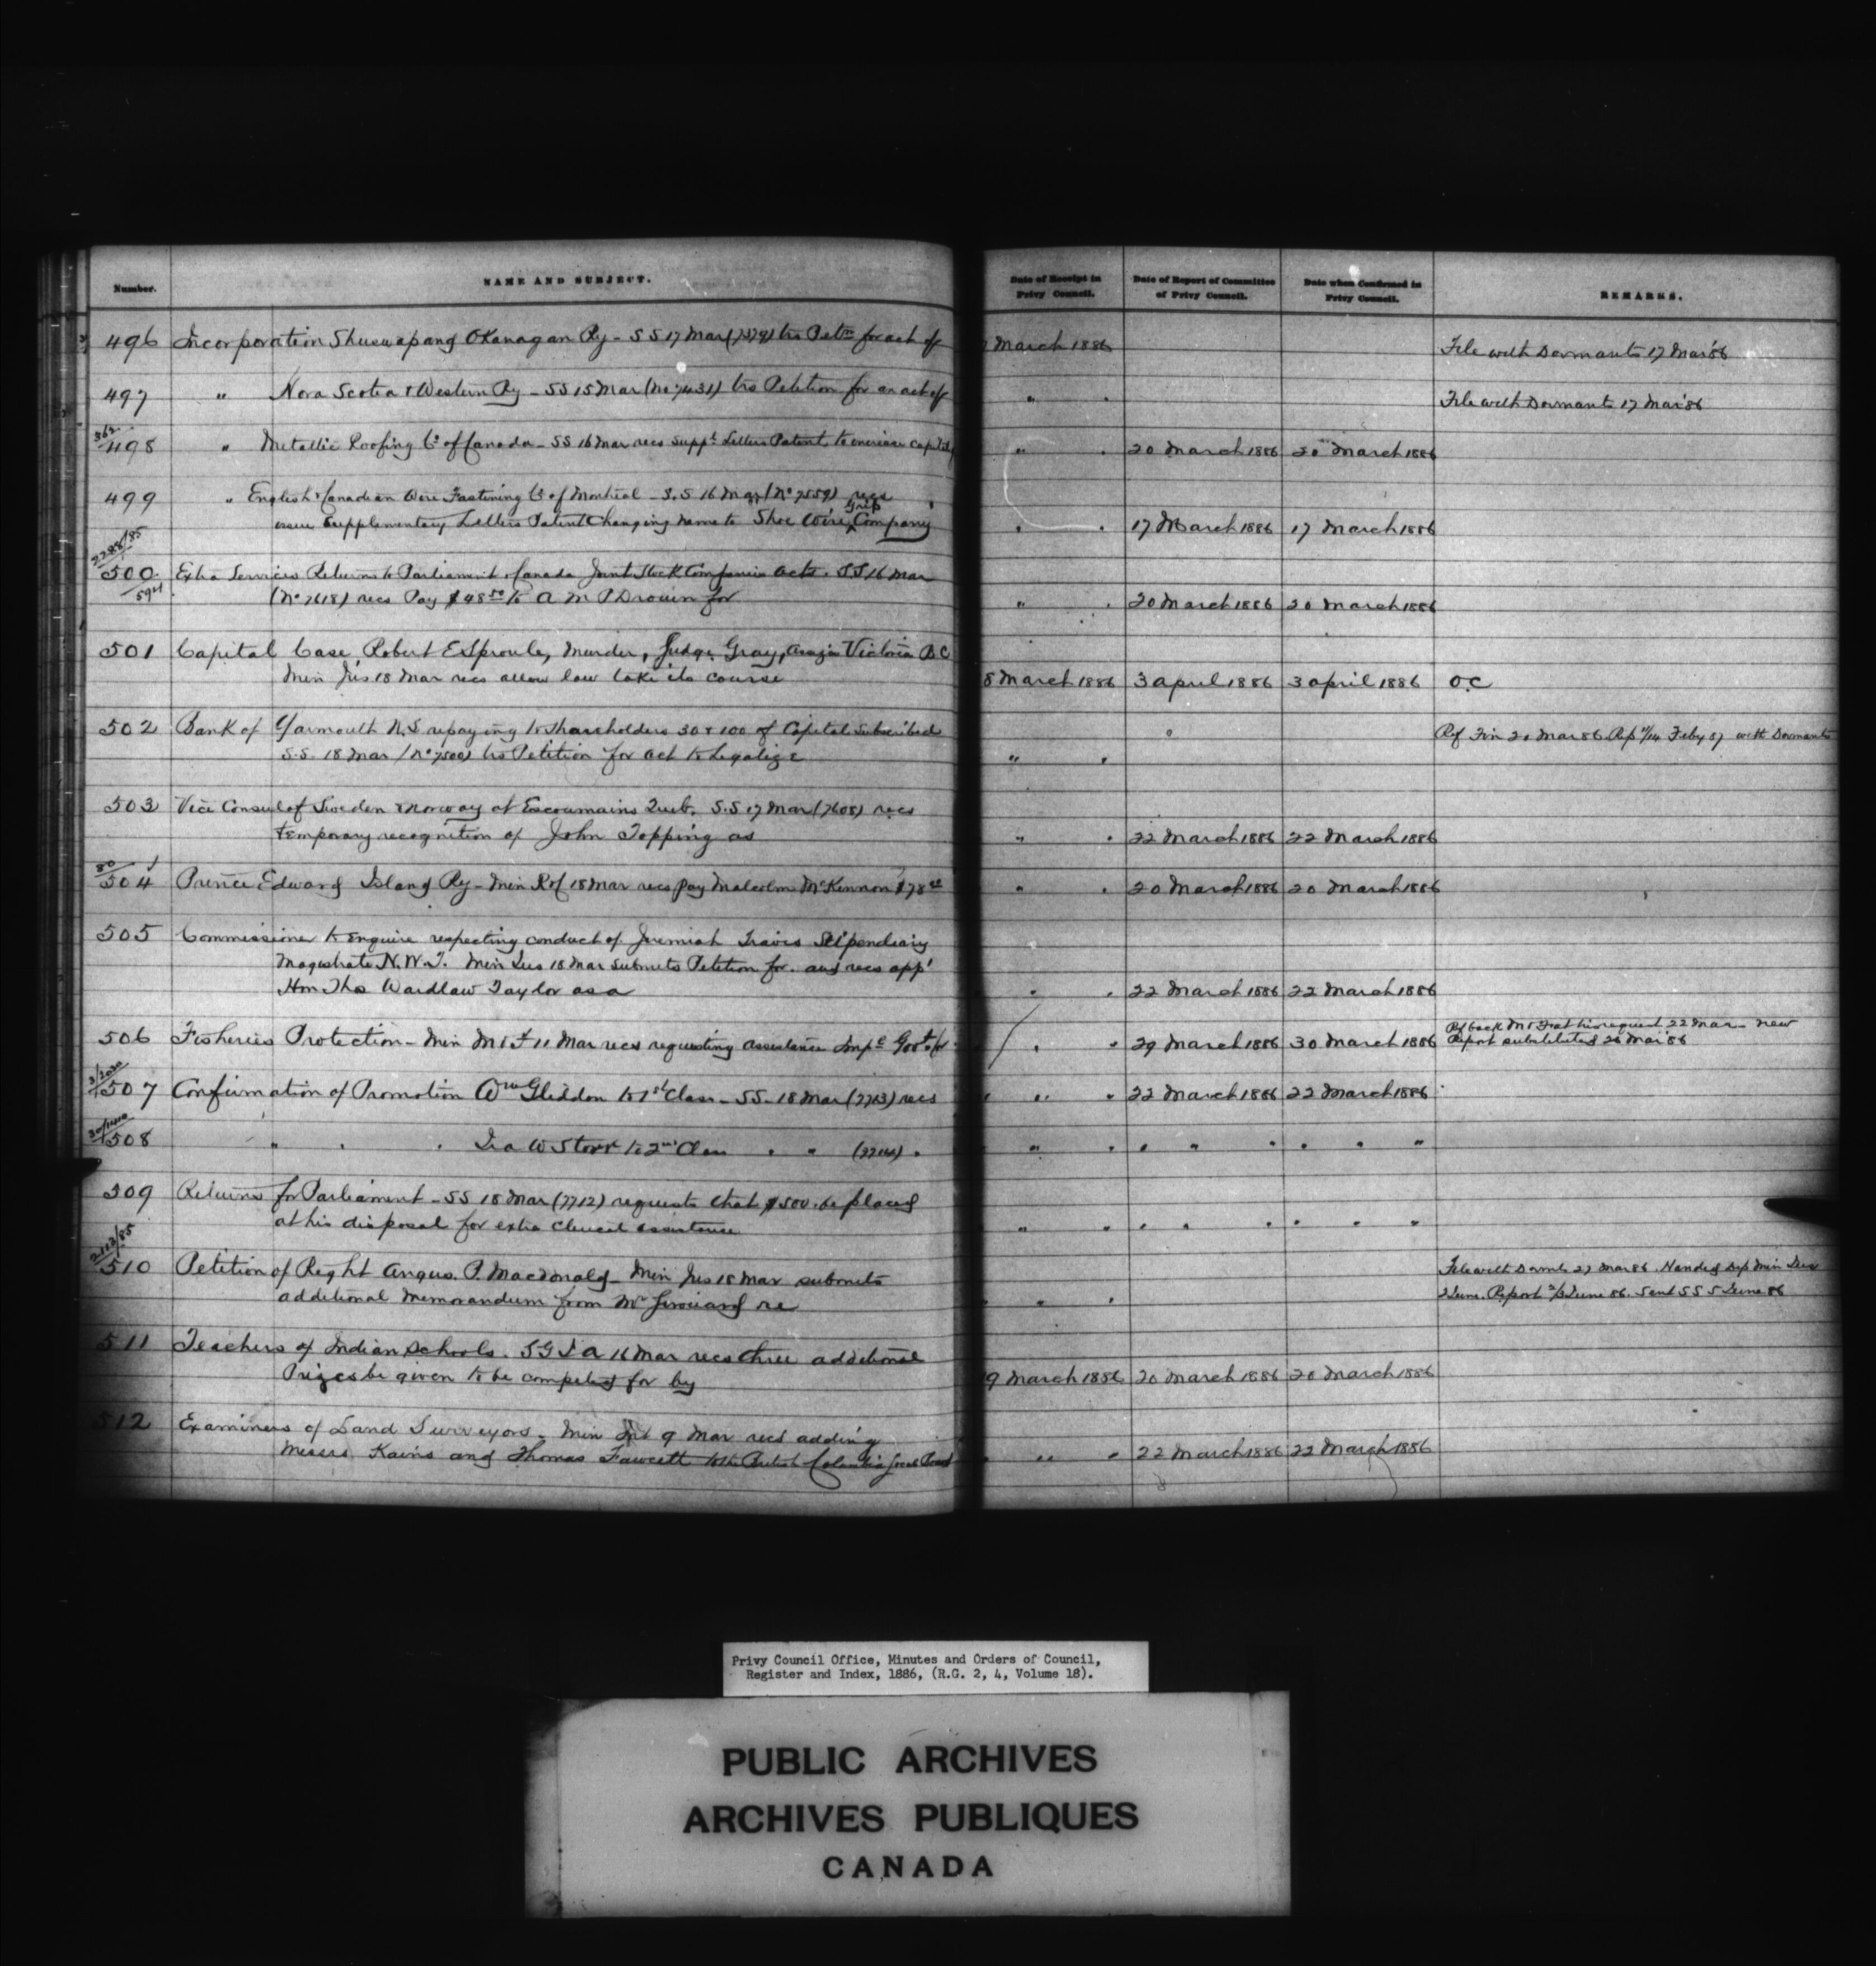 Number. NAME AND SUBJECT. Date of Receipt in Privy Council. Date of Report of Committee of Privy Council. Date when Confirmed in Privy Council. REMARKS.
496 Incorporation Shuswap and Okanagan Ry - SS 17 Mar (7579) trs Petn for act of March 1886 File with Dormants 17 Mar '86
497 " Nova Scotia & Western Ry - SS 15 Mar (No 7431) trs Petition for an act of " " File with Dormants 17 Mar '86
362
498 " Metallic Roofing Co of Canada - SS 16 Mar recs suppt Letters Patent to increase capital " " 20 March 1886 20 March 1886
499 " English & Canadian Wire Fastening Co of Montreal - S.S 16 Mar (No 7559) recs
issue Supplementary Letters Patent Changing name to Shoe Wire Grip Company " " 17 March 1886 17 March 1886
2288/85
500 Extra Services Returns to Parliament Canada Joint Stock Companies Acts. SS 16 Mar
594 (No 7618) recs Pay $48.50 to A M P Drouin for " " 20 March 1886 20 March 1886
501 Capital Case, Robert E Sproule, Murder, Judge Gray, Victoria B C
Min Jus 18 Mar recs allow law take its course 8 March 1886 3 April 1886 3 April 1886 O.C
502 Bank of Yarmouth N.S repaying to shareholders 30 & 100 of Capital Subscribed Ref Fin 20 Mar 86 Rep 11/14 Feby 87 with Dormants
S.S. 18 Mar (No 7500) trs Petition for act to Legalize " "
503 Vice Consul of Sweden & Norway at Escoumains Queb. S.S 17 Mar (7608) recs
temporary recognition of John Topping as " " 22 March 1886 22 March 1886
80
504 Prince Edward Island Ry - Min R of 18 Mar recs pay Malcolm McKinnon $78 " " 20 March 1886 20 March 1886
505 Commissioner to Enquire respecting conduct of Jeremiah Travis Stipendiary
Magistrate N.W.T. Min Jus 18 Mar submits Petition for. and recs app'
Hon Thos Wardlaw Taylor as a " " 22 March 1886 22 March 1886
506 Fisheries Protection - Min M & F 11 Mar recs requesting assistance Impl Govt for " " 29 March 1886 30 March 1886 Ref back M & F at his request 22 Mar - new
Report substituted 26 Mar '86
507 Confirmation of Promotion Wm Gliddon to 1st Class - SS - 18 Mar (7713) recs " " 22 March 1886 22 March 1886
508 " " " Ira W Storr to 2nd Class " " " " " " " " " "
509 Returns for Parliament - SS 18 Mar (7712) requests that $500. be placed
at his disposal for extra clerical assistance " " " " " " " "
2113/85
510 Petition of Right Angus. P. Macdonald - Min Jus 18 Mar submits File with Dormts 27 Mar 86. Handed Dep Min Jus
additional memorandum from Mr Girouard re " " " 2 June. Report 3/5 June 86. Sent SS 5 June 86
511 Teachers of Indian Schools. S G I A 16 Mar recs three additional
Prizes be given to be competed for by 9 March 1886 20 March 1886 20 March 1886
512 Examiners of Land Surveyors. Min Int 9 Mar recs adding
Messrs Kains and Thomas Fawcett to the British Columbia Local Board " " 22 March 1886 22 March 1886
Privy Council Office, Minutes and Orders of Council,
Register and Index, 1886, (R.G. 2, 4, Volume 18).
PUBLIC ARCHIVES
ARCHIVES PUBLIQUES
CANADA